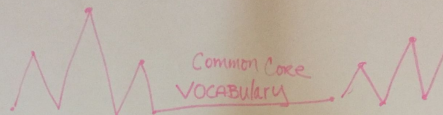 Common Core
VOCABulary